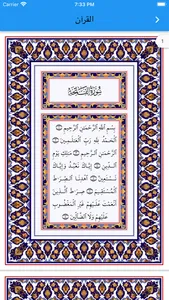 7:33 PM
القرآن
1
سُورَةُ الْفَاتِحَةِ
بِسْمِ اللَّهِ الرَّحْمَٰنِ الرَّحِيمِ ١
الْحَمْدُ لِلَّهِ رَبِّ الْعَالَمِينَ ٢
الرَّحْمَٰنِ الرَّحِيمِ ٣ مَالِكِ يَوْمِ
الدِّينِ ٤ إِيَّاكَ نَعْبُدُ وَإِيَّاكَ
نَسْتَعِينُ ٥ اهْدِنَا الصِّرَاطَ
الْمُسْتَقِيمَ ٦ صِرَاطَ الَّذِينَ
أَنْعَمْتَ عَلَيْهِمْ غَيْرِ الْمَغْضُوبِ
عَلَيْهِمْ وَلَا الضَّالِّينَ ٧